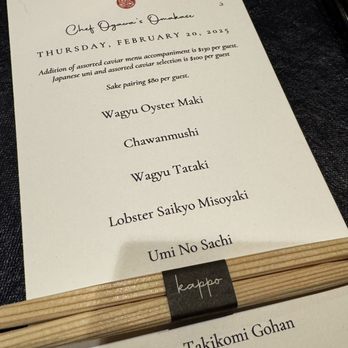 Chef Ogawa's Omakase
THURSDAY, FEBRUARY 20, 2025
Addition of assorted caviar menu accompaniment is $130 per guest.
Japanese uni and assorted caviar selection is $100 per guest.
Sake pairing $80 per guest.
Wagyu Oyster Maki
Chawanmushi
Wagyu Tataki
Lobster Saikyo Misoyaki
Umi No Sachi
kappo
Takikomi Gohan